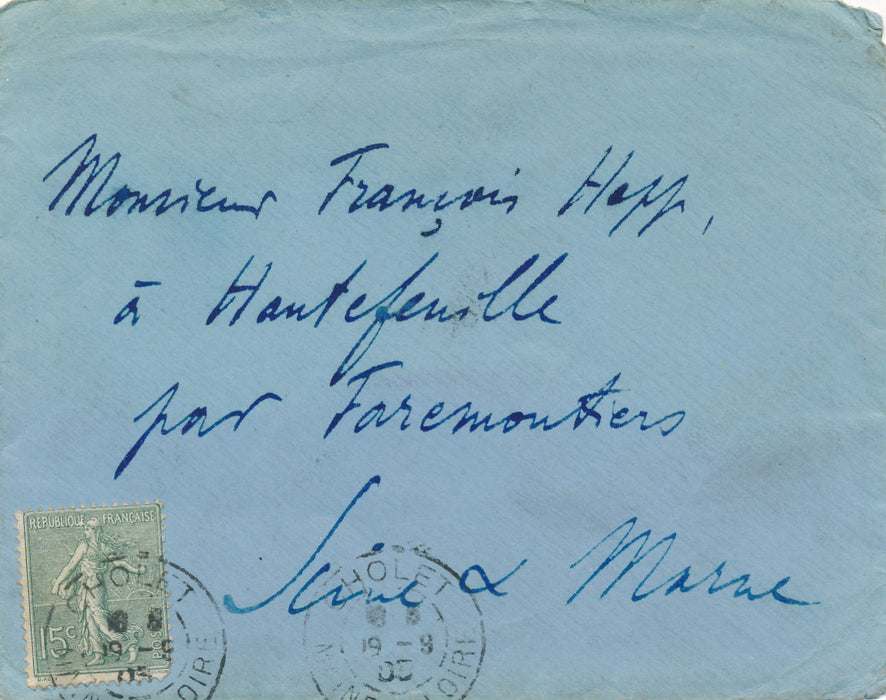 Monsieur François Hepp,
à Hautefeuille
par Faremoutiers
Seine & Marne
REPUBLIQUE FRANÇAISE
15c
POSTES
CHOLET
19 - 9
05
LOIRE
CHOLET
19 - 9
05
LOIRE